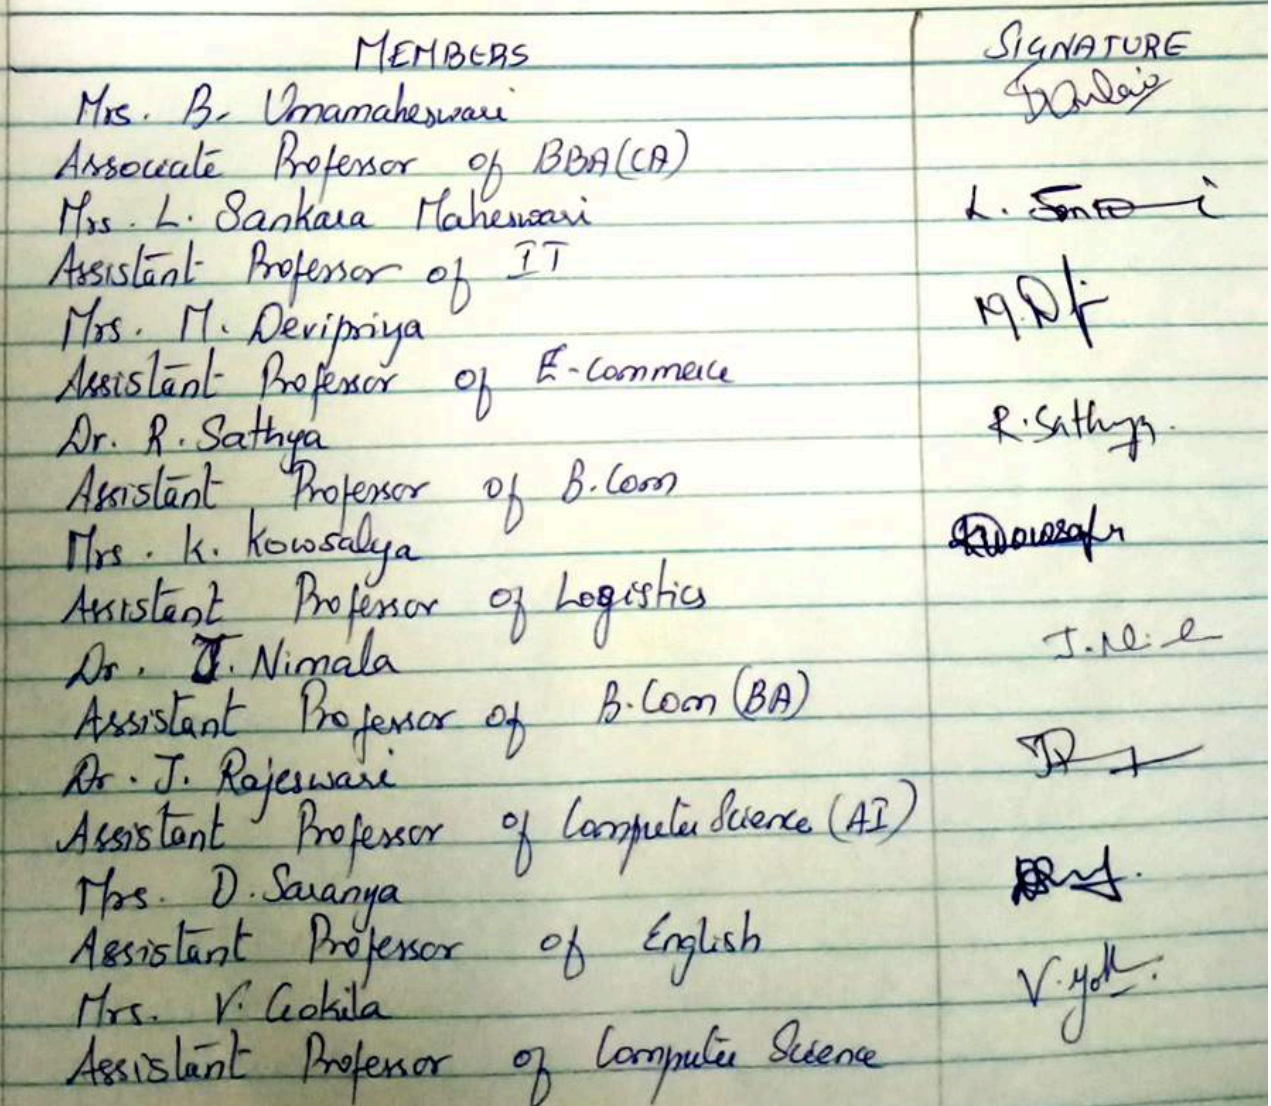 MEMBERS SIGNATURE
Mrs. B. Umamaheswari
Associate Professor of BBA(CA)
Mrs. L. Sankara Maheswari L.
Assistant Professor of IT
Mrs. M. Devipriya M.
Assistant Professor of E-Commerce
Dr. R. Sathya R. Sathya.
Assistant Professor of B.Com
Mrs. K. Kowsalya
Assistant Professor of Logistics
Dr. J. Nimala J.
Assistant Professor of B.Com (BA)
Dr. J. Rajeswari
Assistant Professor of Computer Science (AI)
Mrs. D. Saranya
Assistant Professor of English
Mrs. V. Gokila V.
Assistant Professor of Computer Science